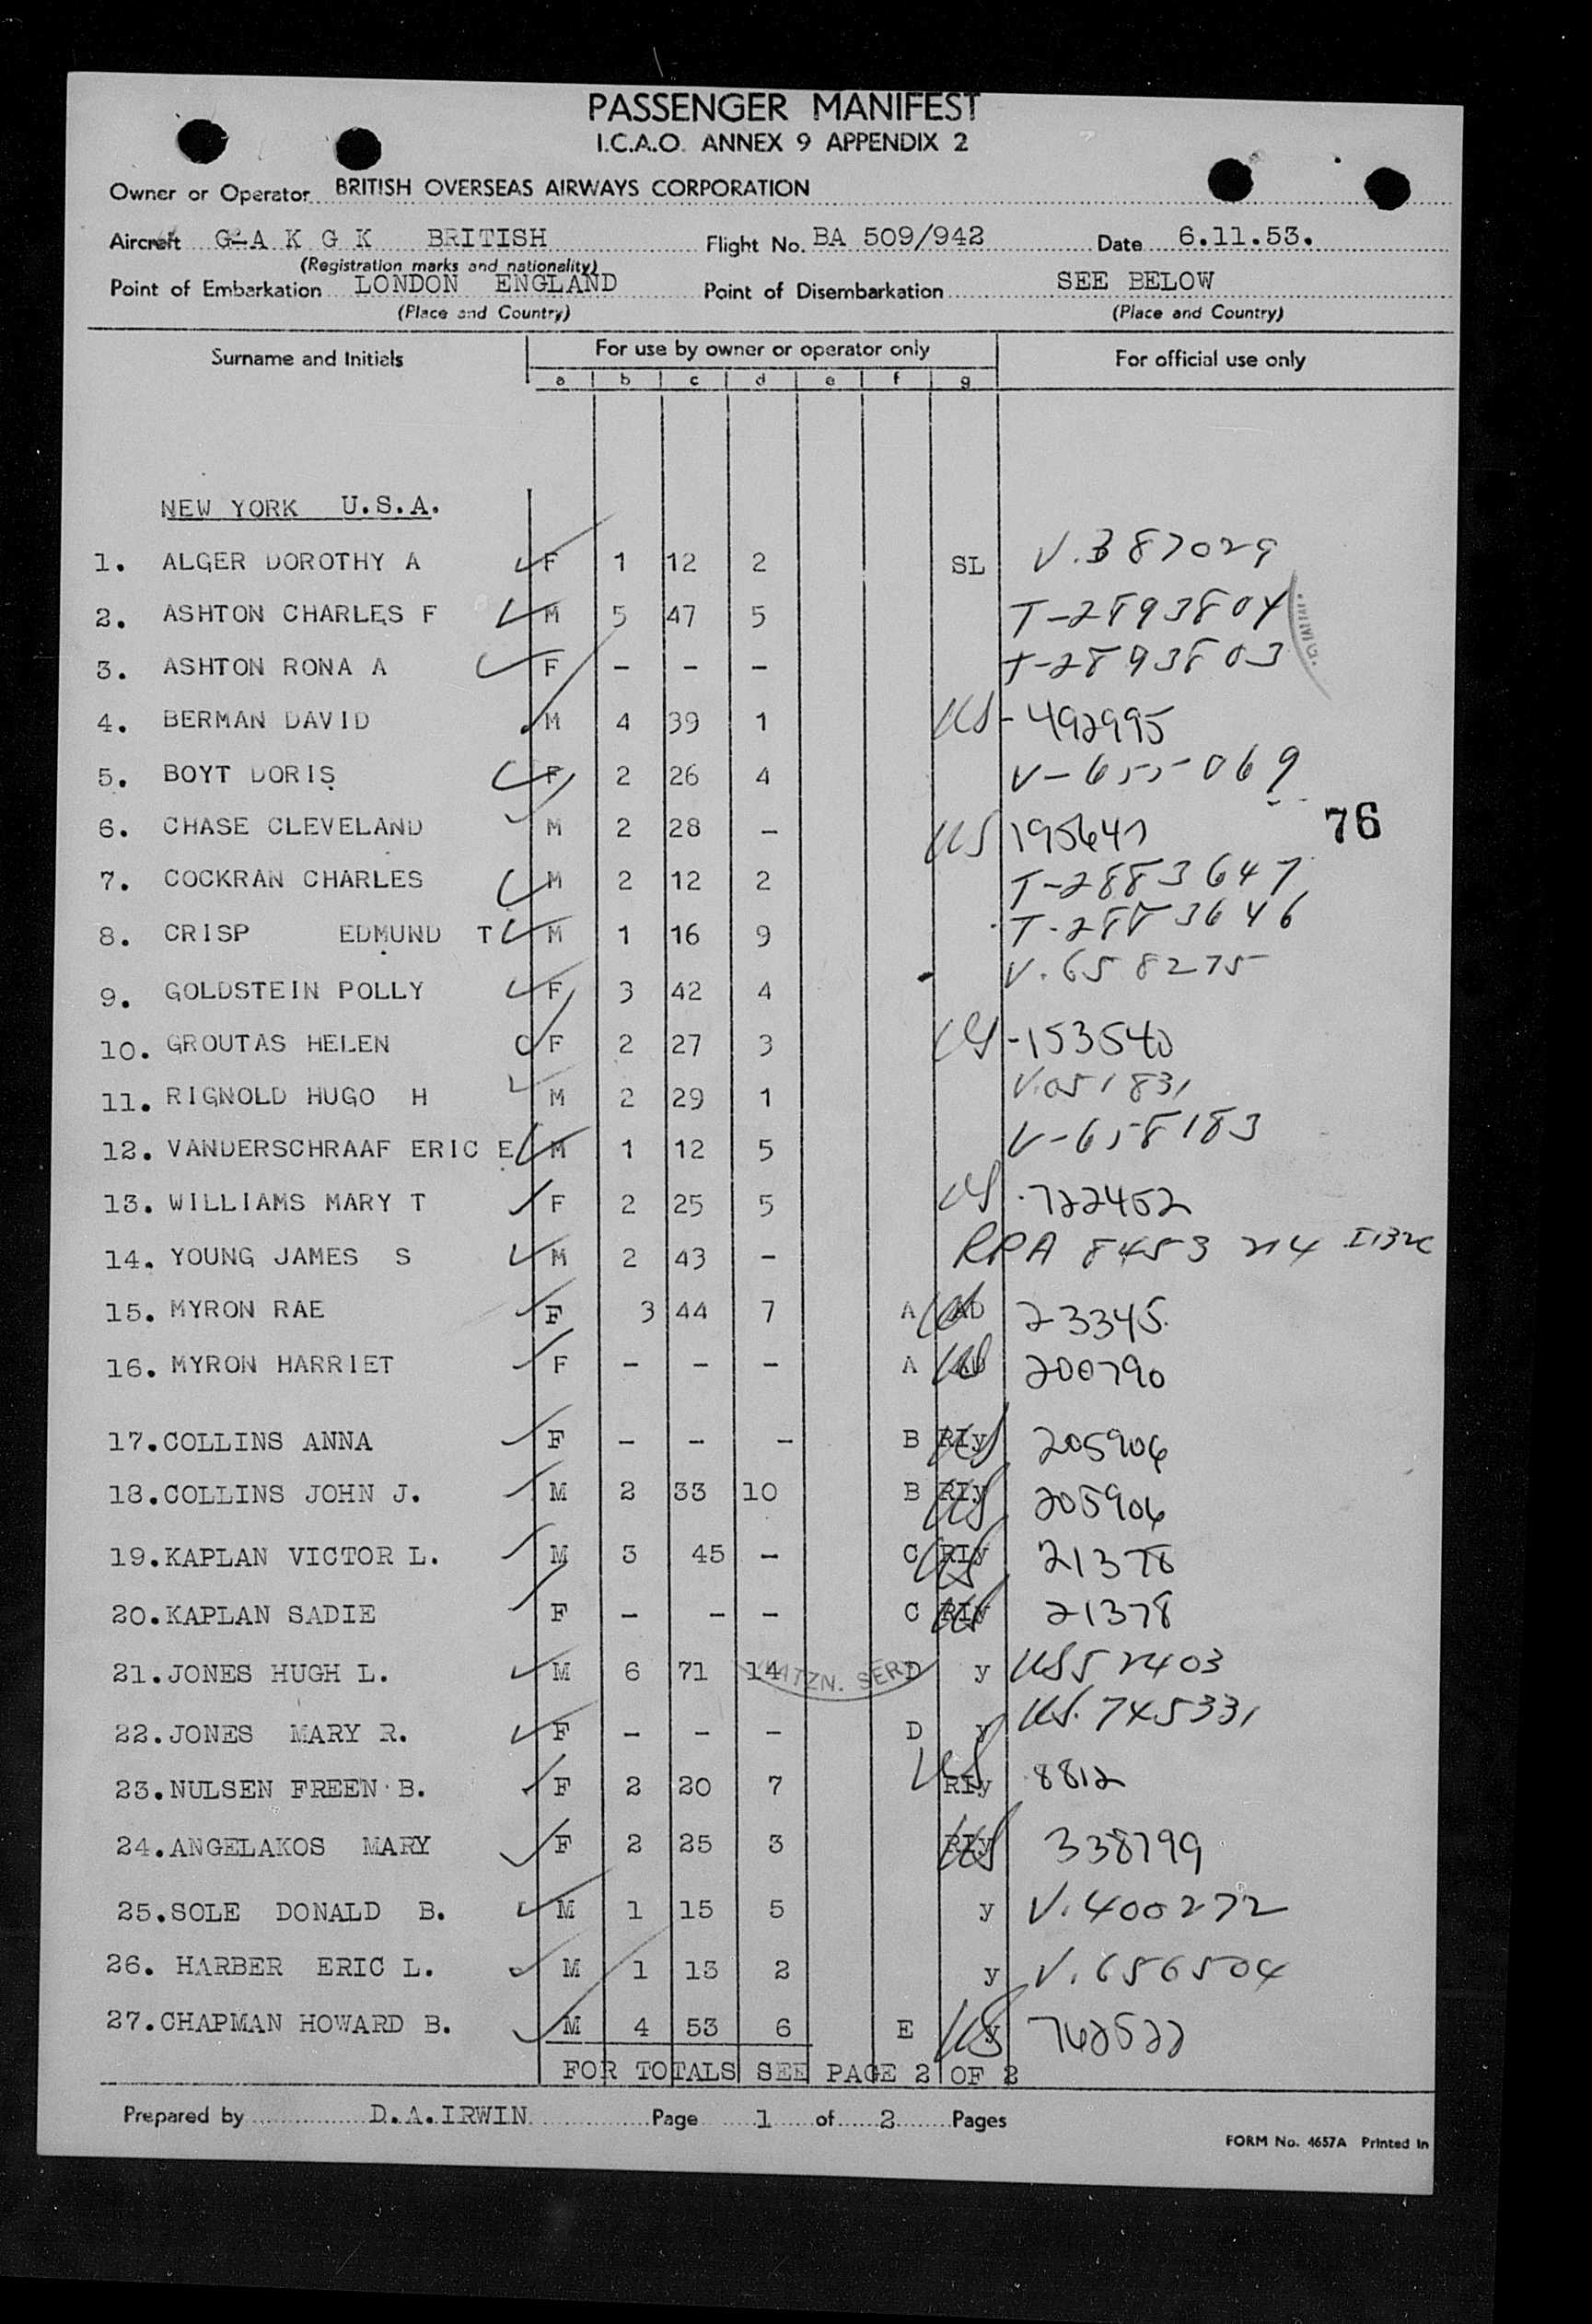 PASSENGER MANIFEST
I.C.A.O. ANNEX 9 APPENDIX 2
Owner or Operator BRITISH OVERSEAS AIRWAYS CORPORATION
Aircraft G-A K G K BRITISH Flight No. BA 509/942 Date 6.11.53.
(Registration marks and nationality)
Point of Embarkation LONDON ENGLAND Point of Disembarkation SEE BELOW
(Place and Country) (Place and Country)
Surname and Initials For use by owner or operator only For official use only
a b c d e f g
NEW YORK U.S.A.
1. ALGER DOROTHY A F 1 12 2 SL V.387029
2. ASHTON CHARLES F M 5 47 5 T-2893804
3. ASHTON RONA A F - - - T-2893803
4. BERMAN DAVID M 4 39 1 US-492995
5. BOYT DORIS F 2 26 4 V-655069
6. CHASE CLEVELAND M 2 28 - US 195647
76
7. COCKRAN CHARLES M 2 12 2 T-2883647
8. CRISP EDMUND T M 1 16 9 T-2883646
9. GOLDSTEIN POLLY F 3 42 4 V.658275
10. GROUTAS HELEN F 2 27 3 US-153540
11. RIGNOLD HUGO H M 2 29 1 V.051831
12. VANDERSCHRAAF ERIC E M 1 12 5 V-658183
13. WILLIAMS MARY T F 2 25 5 US.722452
14. YOUNG JAMES S M 2 43 - RPA 8453
15. MYRON RAE F 3 44 7 A US 23345
16. MYRON HARRIET F - - - A US 200790
17. COLLINS ANNA F - - - B RIy US 205906
18. COLLINS JOHN J. M 2 33 10 B RIy US 205906
19. KAPLAN VICTOR L. M 3 45 - C RIy US 21378
20. KAPLAN SADIE F - - - C RIy US 21378
21. JONES HUGH L. M 6 71 14 D y US 52403
NATZN. SER
22. JONES MARY R. F - - - D y US.745331
23. NULSEN FREEN B. F 2 20 7 RIy US 8812
24. ANGELAKOS MARY F 2 25 3 RIy US 338799
25. SOLE DONALD B. M 1 15 5 y V.400272
26. HARBER ERIC L. M 1 13 2 y V.656504
27. CHAPMAN HOWARD B. M 4 53 6 E y US 762522
FOR TOTALS SEE PAGE 2 OF 2
Prepared by D.A.IRWIN Page 1 of 2 Pages
FORM No. 4657A Printed in